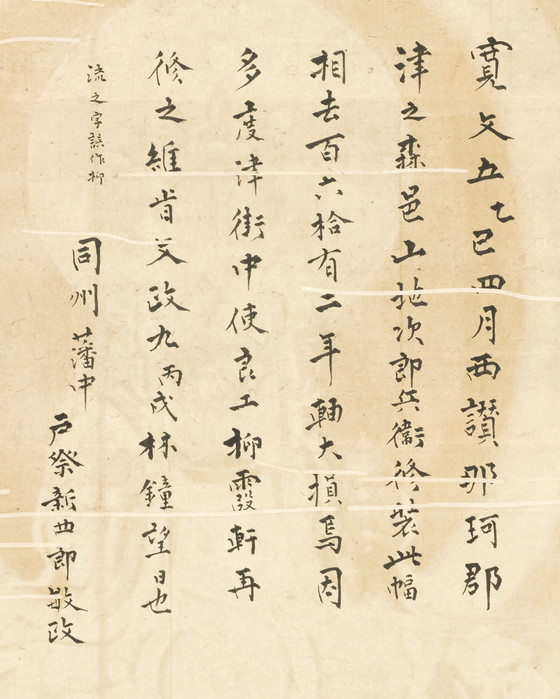 寛文五乙巳四月西讃那珂郡
津之森邑山地次郎兵衛修装此幅
相去百六拾有二年軸大損焉因
多度津街中使良工柳霞軒再
修之維旹文政九丙戌林鐘望日也
流之字誤作柳
同州藩中
戸祭新四郎敏政